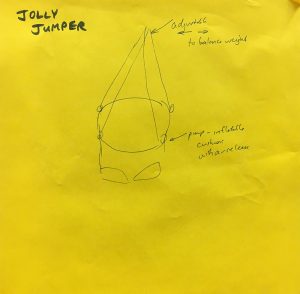 JOLLY
JUMPER
adjustable
to balance weight
pump - inflatable
cushion
with air release